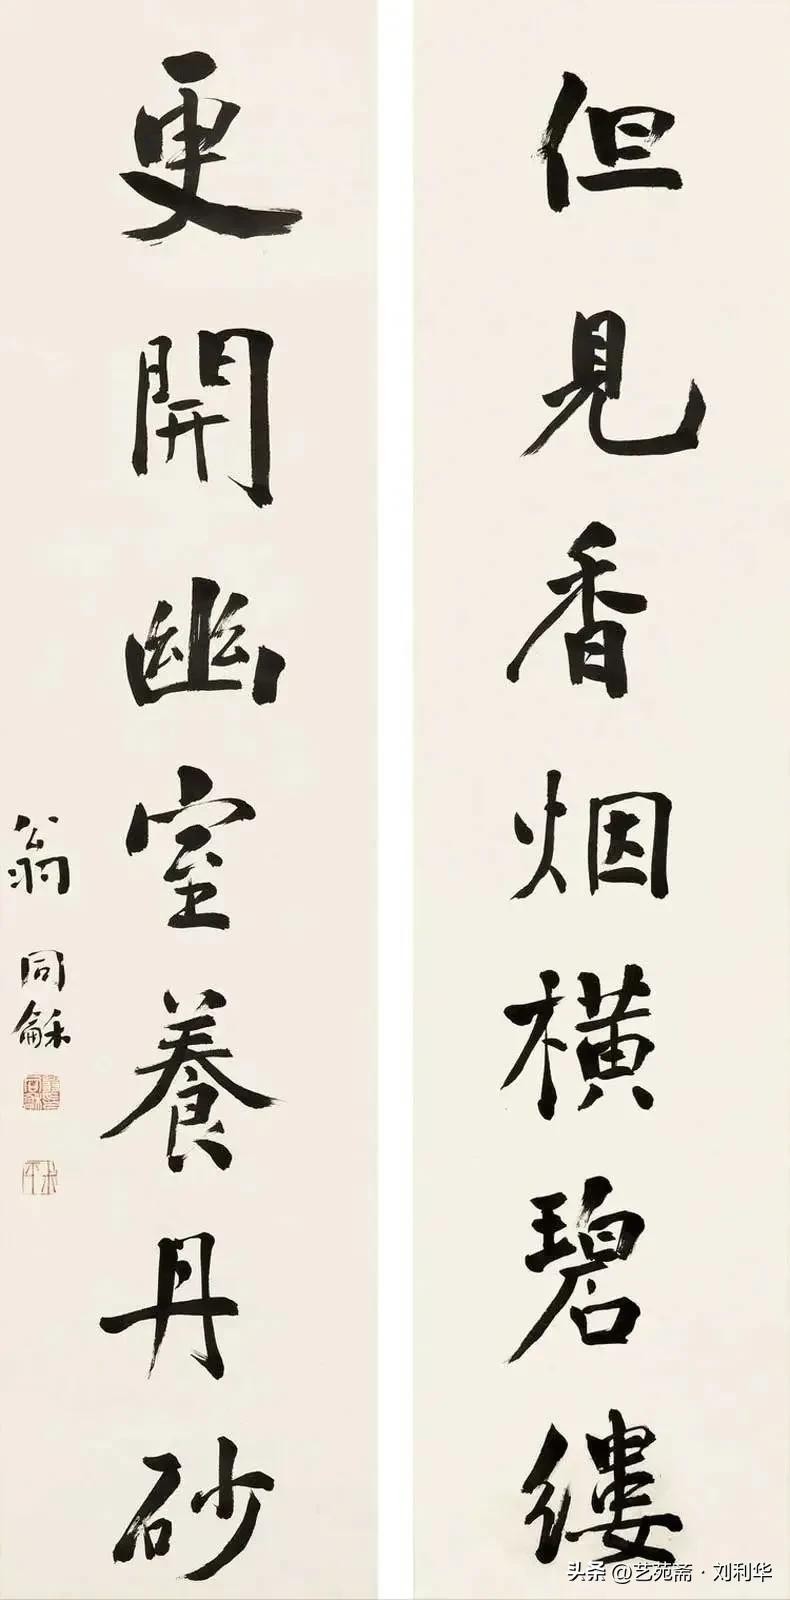 但見香烟橫碧縷
更開幽室養丹砂
翁同龢
头条 @艺苑斋·刘利华